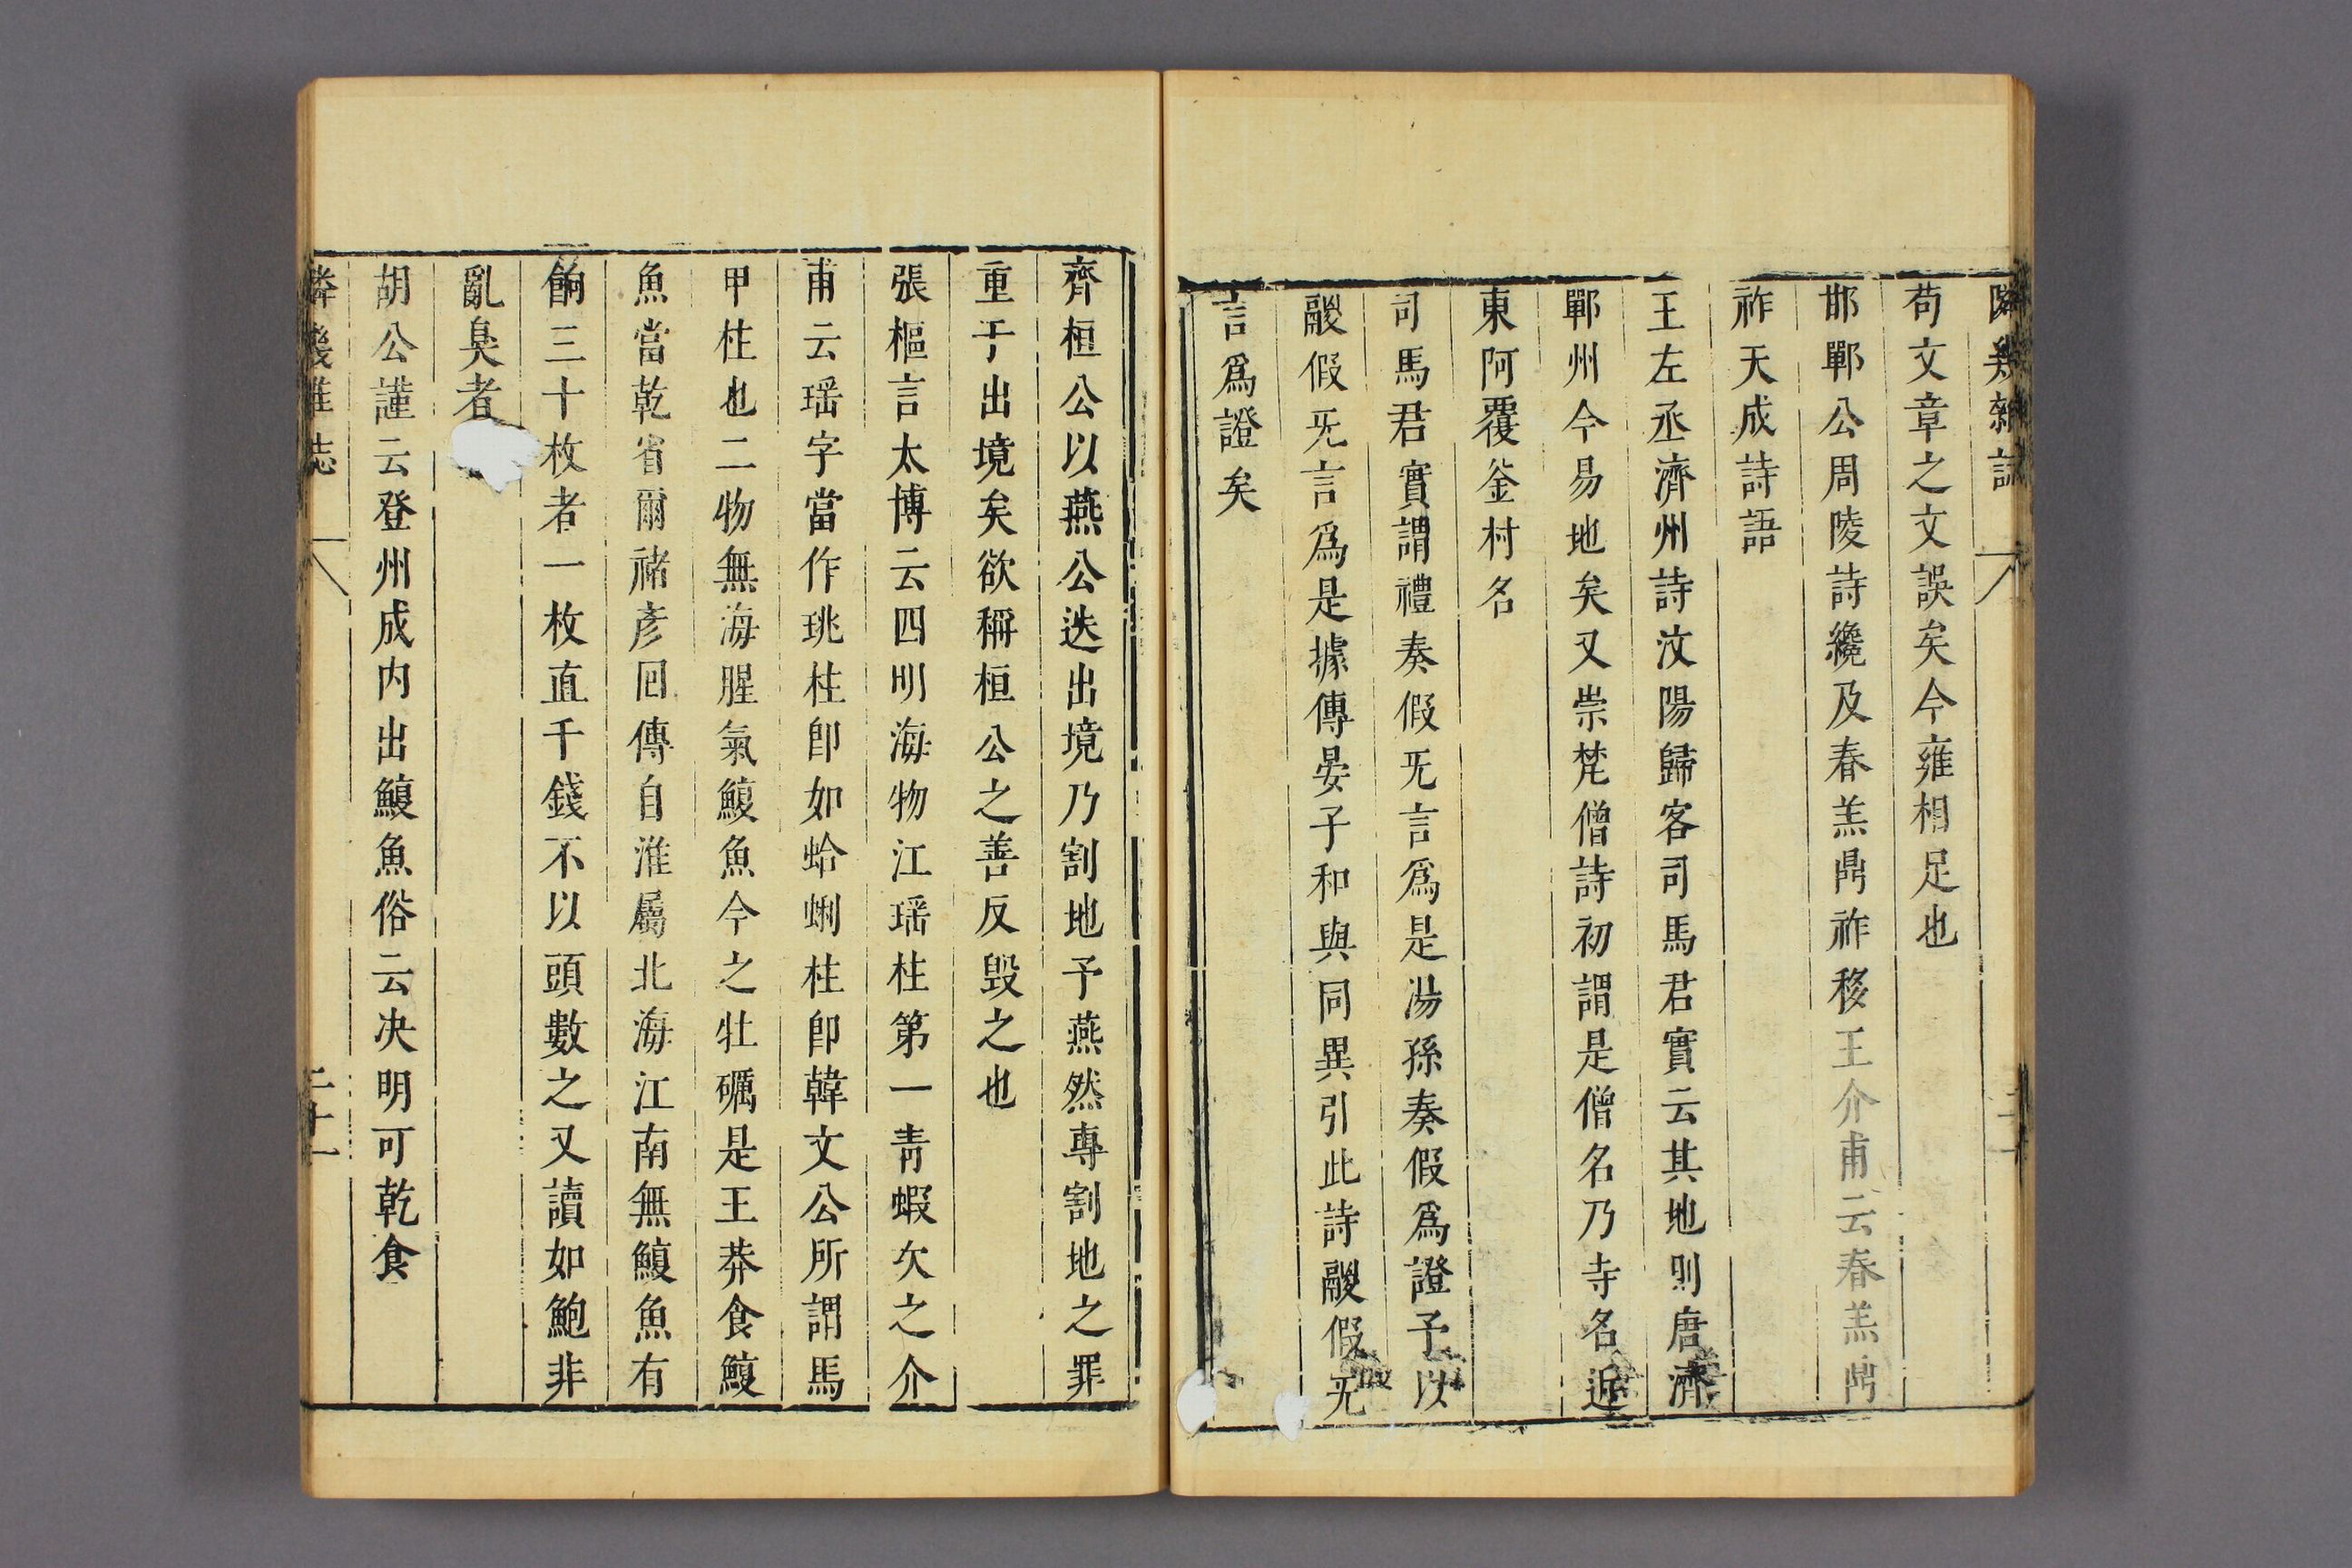 隣幾雜誌
苟文章之文誤矣今雍相足也
邯鄲公周陵詩纔及春羔鼎祚移王介甫云春羔鼎
祚天成詩語
王左丞濟州詩汶陽歸客司馬君實云其地則唐濟
鄆州今易地矣又崇梵僧詩初謂是僧名乃寺名近
東阿覆釜村名
司馬君實謂禮奏假旡言爲是湯孫奏假爲證予以
鬷假旡言爲是據傳晏子和與同異引此詩鬷假旡
言爲證矣
齊桓公以燕公迭出境乃割地予燕然專割地之罪
重于出境矣欲稱桓公之善反毀之也
張樞言太博云四明海物江瑶柱第一青蝦次之介
甫云瑶字當作珧柱即如蛤蜊柱即韓文公所謂馬
甲柱也二物無海腥氣鰒魚今之牡礪是王莽食鰒
魚當乾省爾禇彥囘傳自淮屬北海江南無鰒魚有
餉三十枚者一枚直千錢不以頭數之又讀如鮑非
亂臭者
胡公謹云登州成内出鰒魚俗云决明可乾食
隣幾雜志
二十一